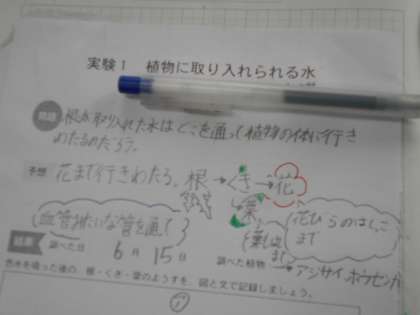 実験1 植物に取り入れられる水
問題 根から取り入れた水はどこを通って植物の体に行き
わたるのだろう。
予想 花まで行きわたる。根→くき→花
葉
血管みたいな管を通て
花びらのはしっこ
まで
葉は
まで
結果 調べた日 6月15日 調べた植物→アジサイ、ホウセンカ
色水を吸った後の、根・くき・葉のようすを、図と文で記録しましょう。